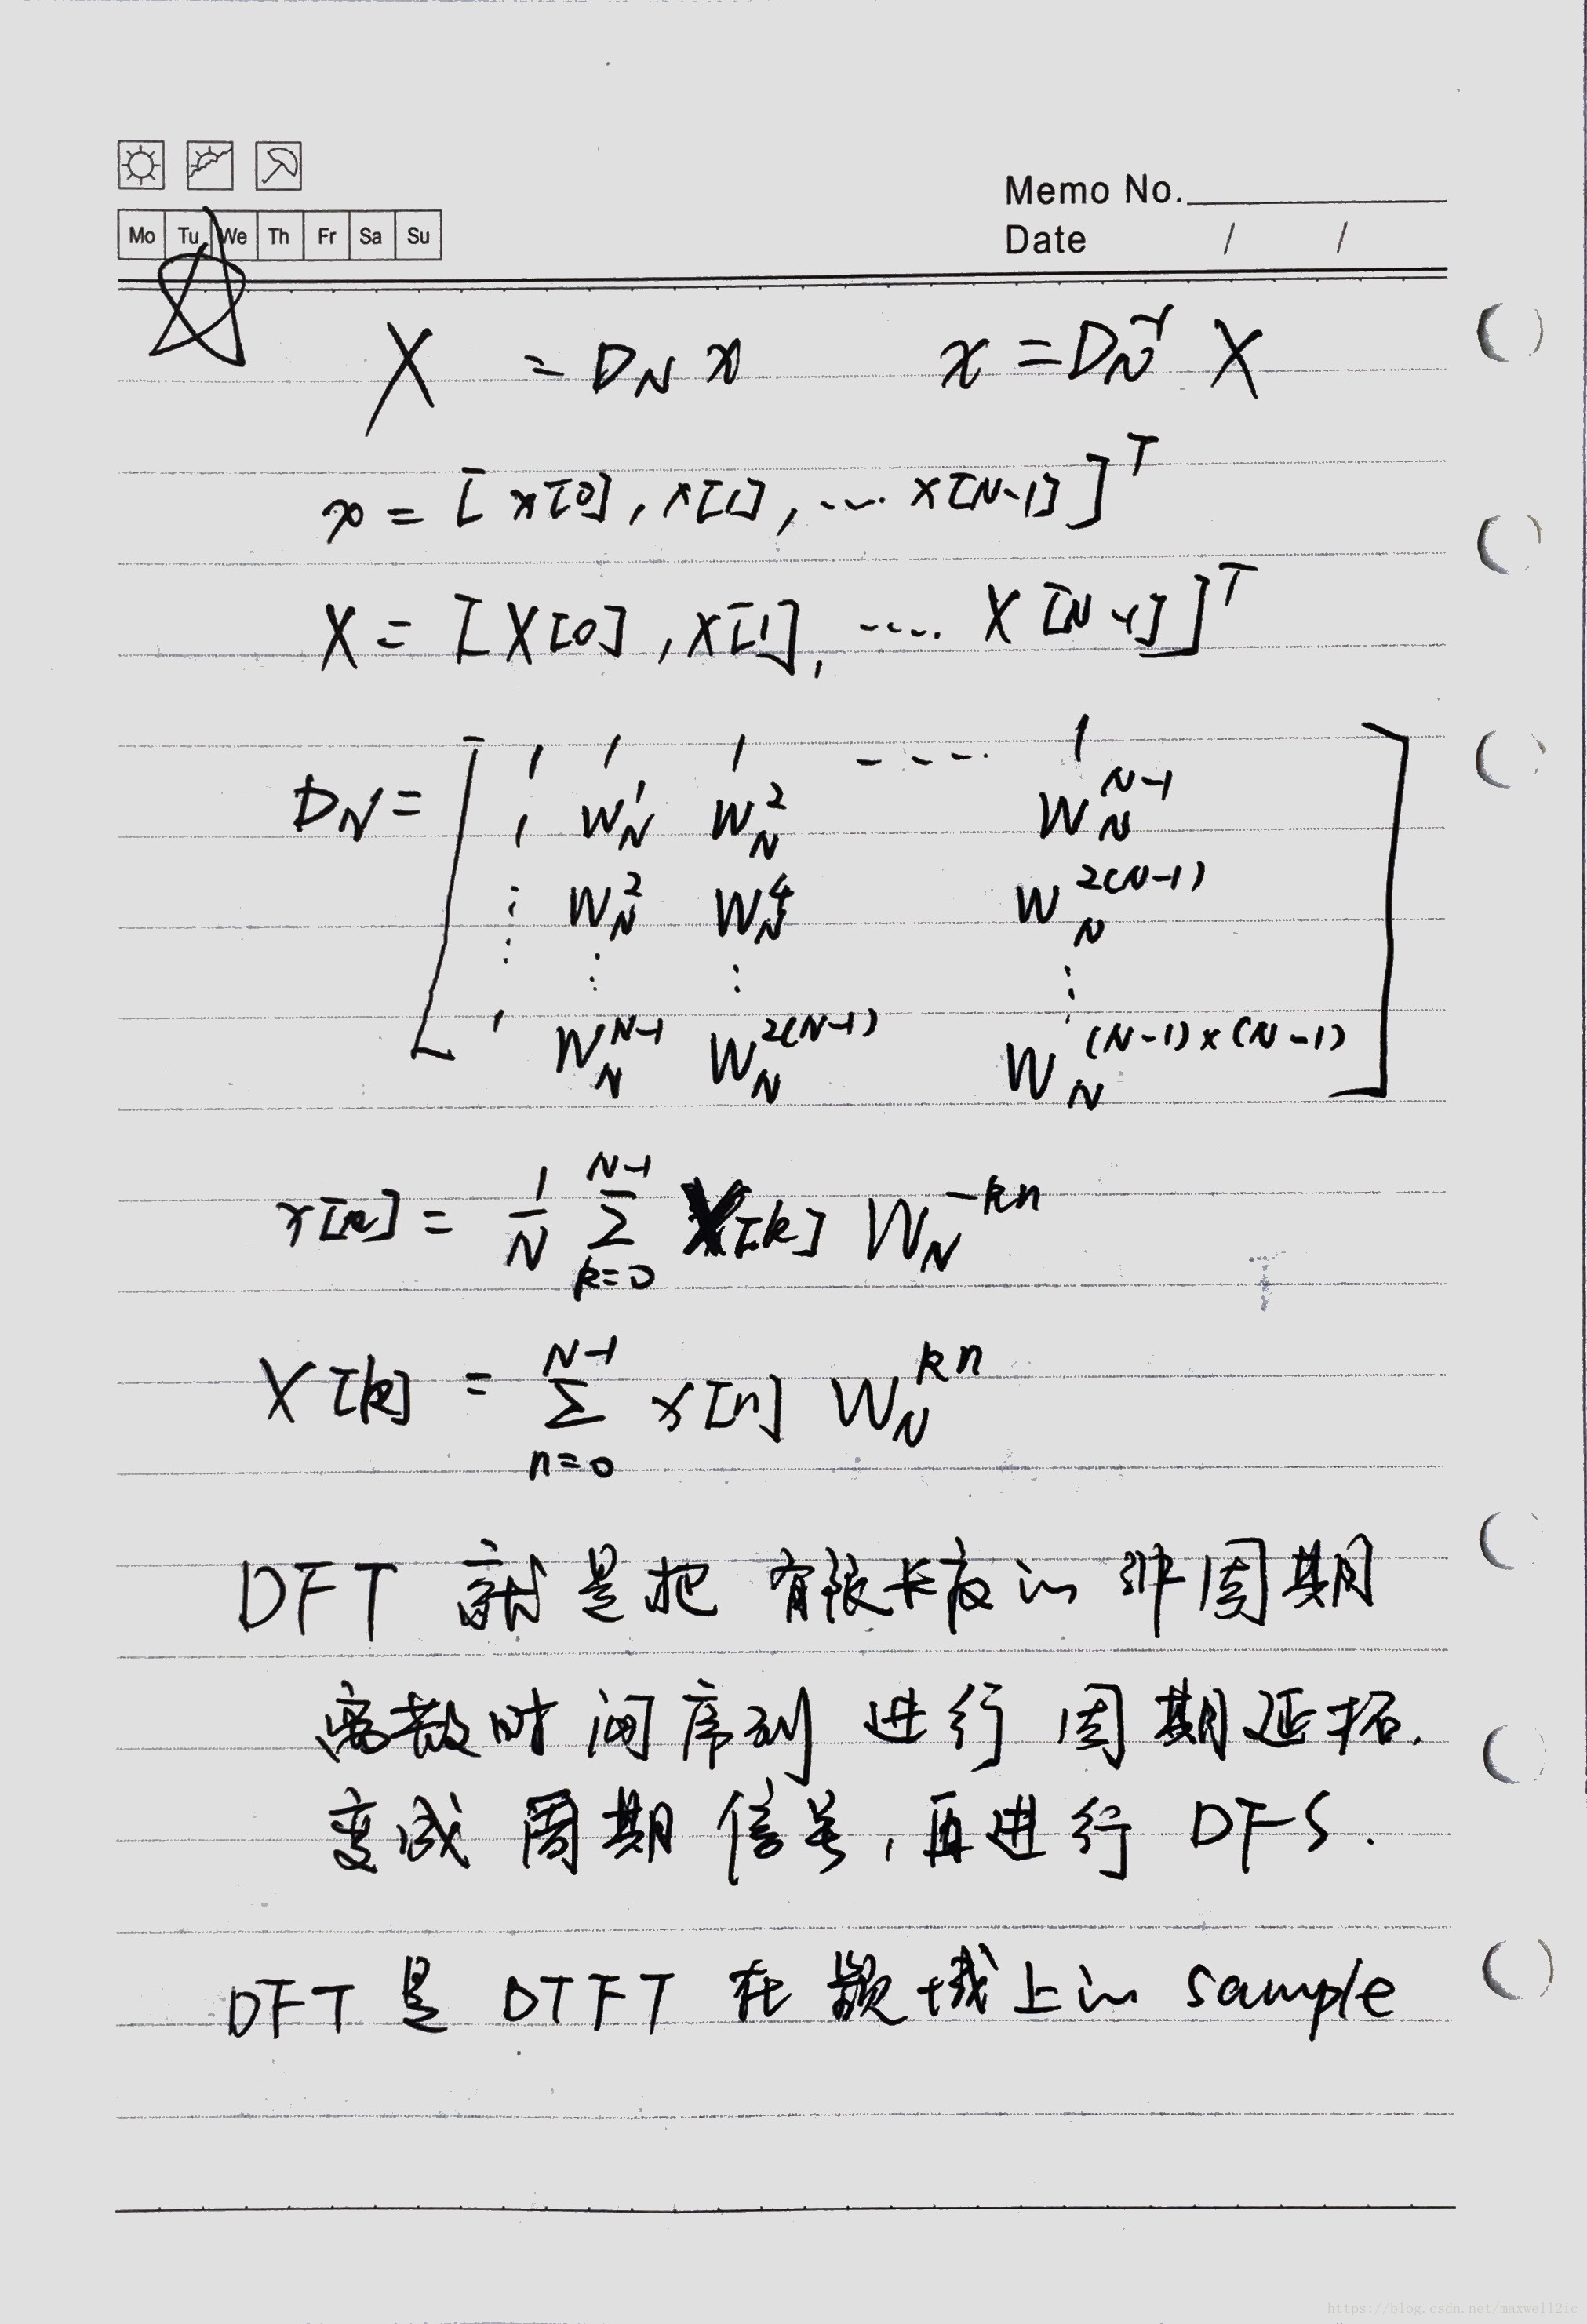 Memo No.
Mo Tu We Th Fr Sa Su
Date / /
X = D_N x x = D_N^{-1} X
x = [x[0], x[1], .... x[N-1]]^T
X = [X[0], X[1], .... X[N-1]]^T
D_N = [ 1 1 1 ---- 1
1 W_N^1 W_N^2 W_N^{N-1}
⋮ W_N^2 W_N^4 W_N^{2(N-1)}
⋮ ⋮ ⋮
1 W_N^{N-1} W_N^{2(N-1)} W_N^{(N-1)×(N-1)} ]
x[n] = \frac{1}{N} \sum_{k=0}^{N-1} X[k] W_N^{-kn}
X[k] = \sum_{n=0}^{N-1} x[n] W_N^{kn}
DFT 就是把 有限长度的 非周期
离散时间序列 进行 周期延拓.
变成 周期 信号, 再进行 DFS.
DFT 是 DTFT 在 频域上的 sample
https://blog.csdn.net/maxwell2ic